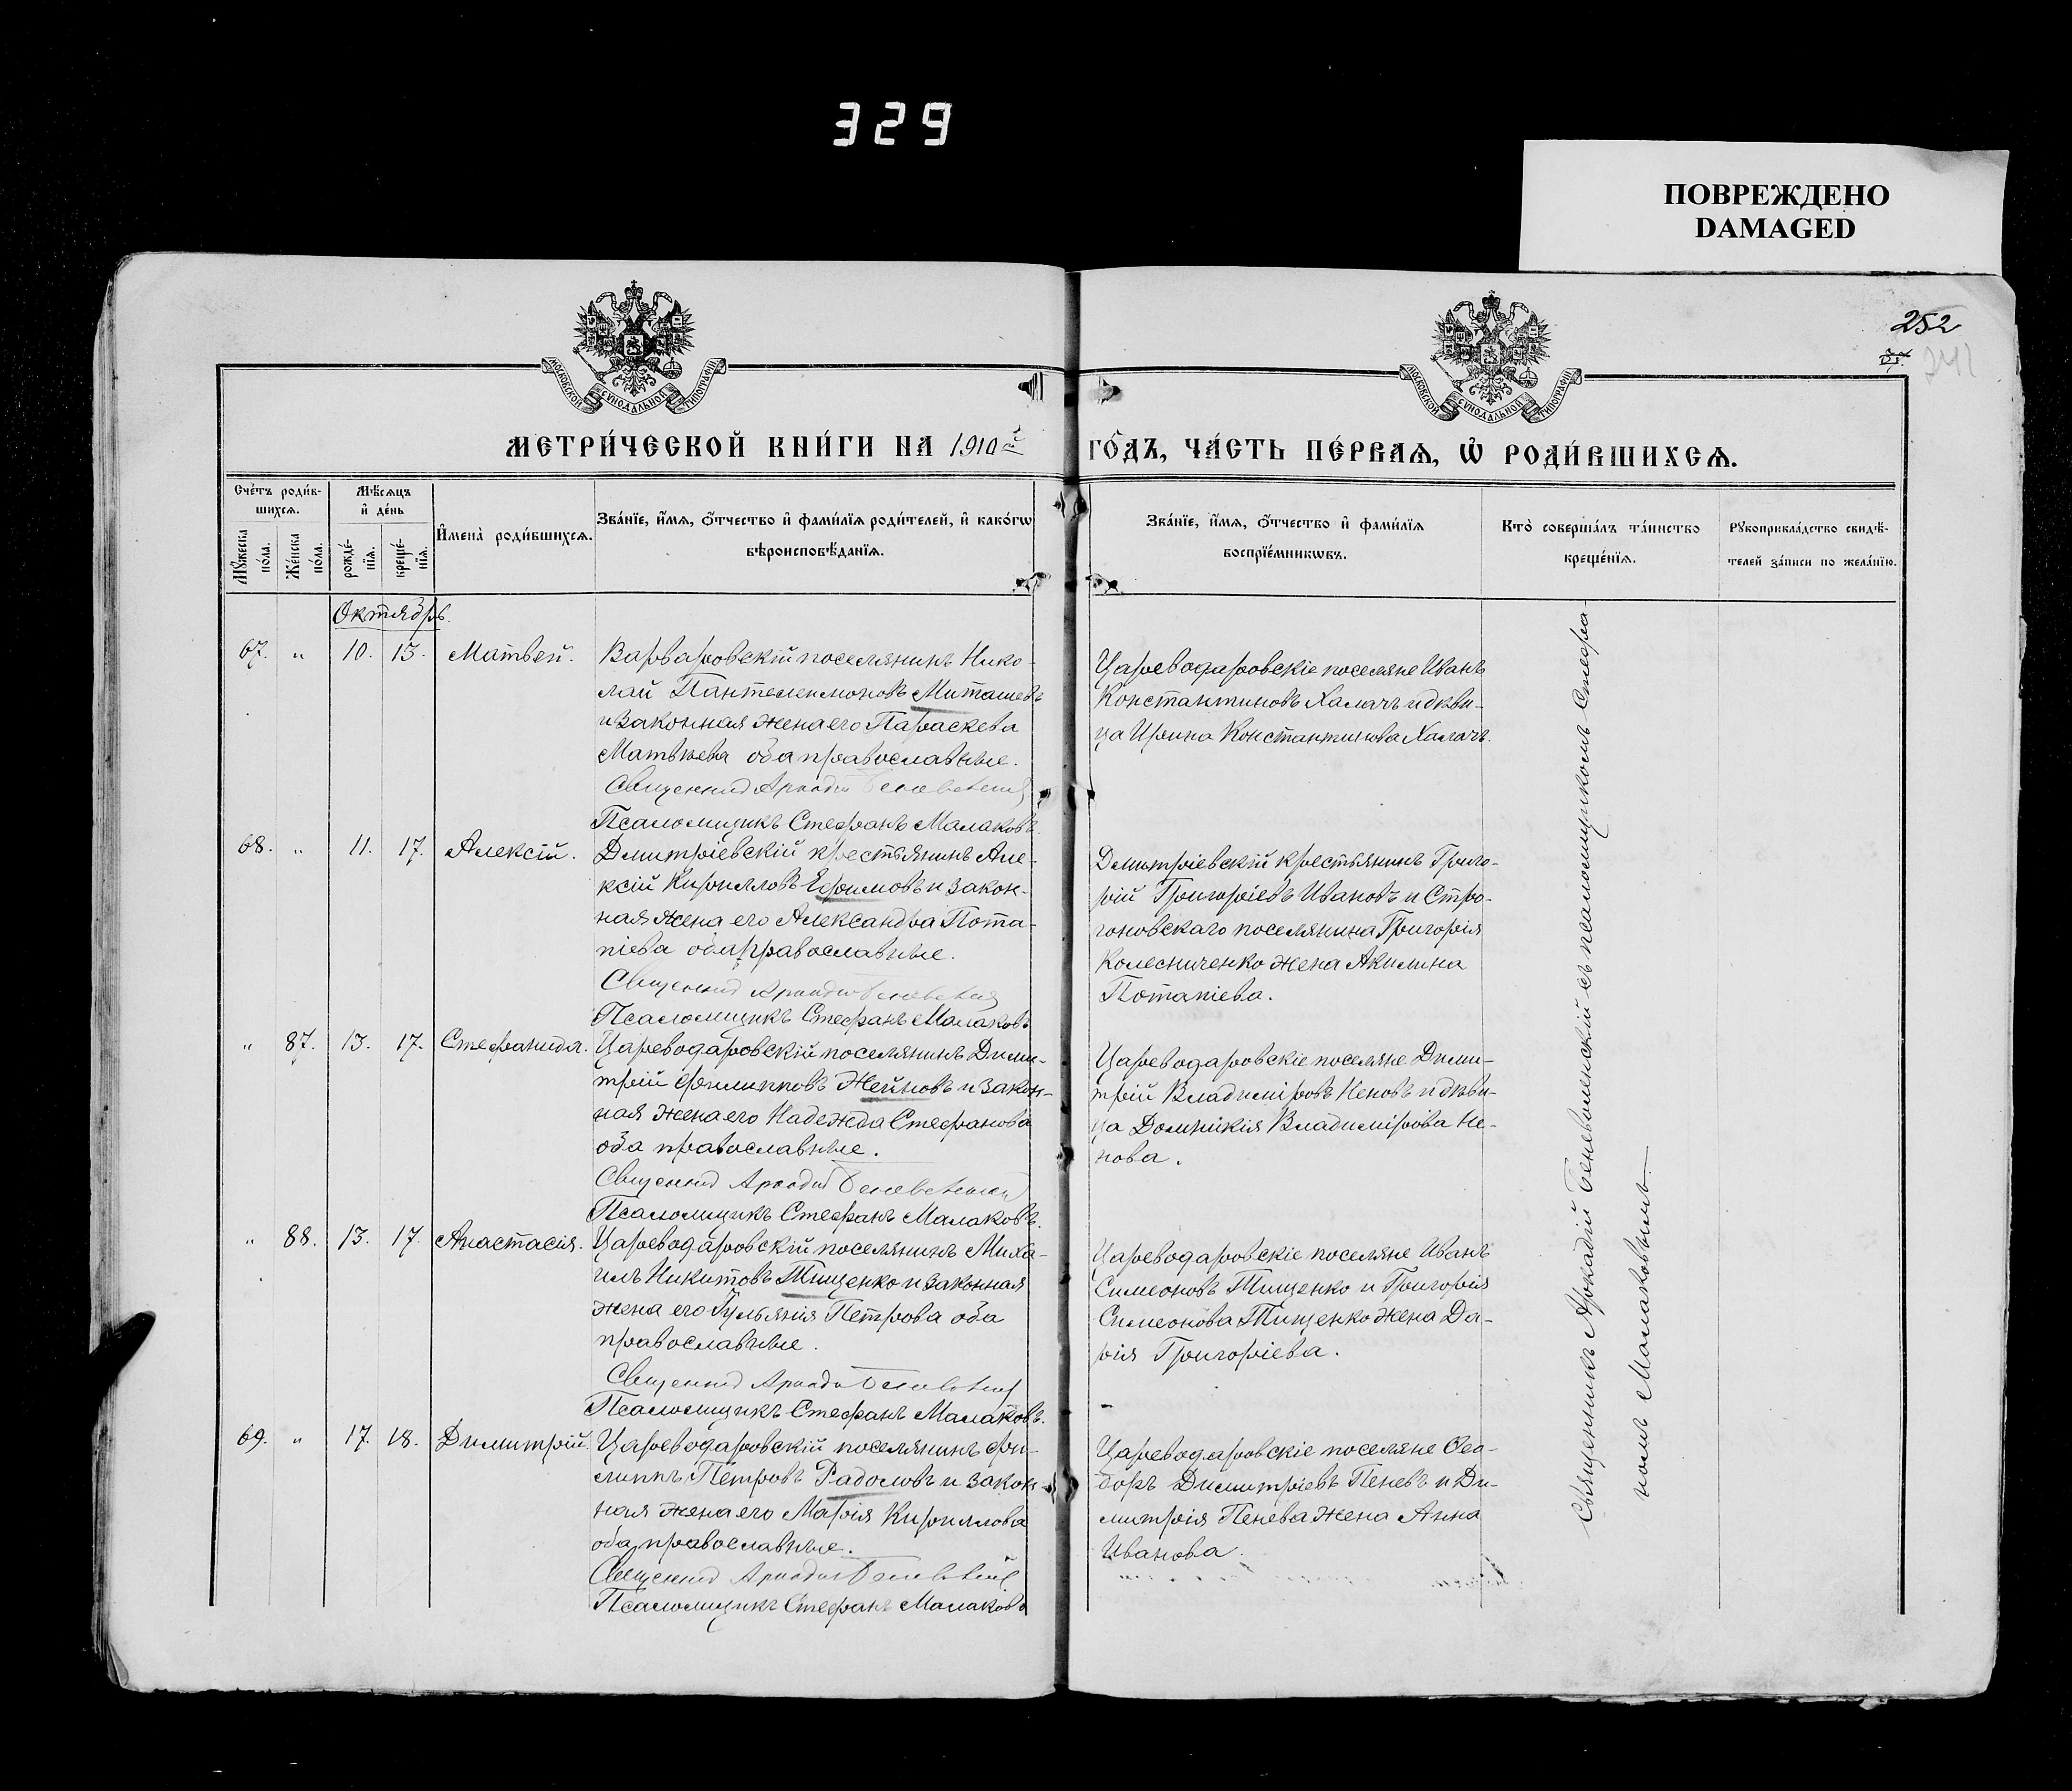 329
ПОВРЕЖДЕНО
DAMAGED
252
МОСКОВСКОЙ СѴНОДАЛЬНОЙ ТИПОГРАФІИ
МОСКОВСКОЙ СѴНОДАЛЬНОЙ ТИПОГРАФІИ
МЕТРИ́ЧЕСКОЙ КНИ́ГИ НА 1910й
ГО́ДЪ, ЧА́СТЬ ПЕ́РВАѦ, Ѡ҆ РОДИ́ВШИХСѦ.
Сче́тъ роди́в-
шихсѧ.
Мѣ́сѧцъ
и҆ де́нь
Мꙋ́жеска
по́ла.
Же́нска
по́ла.
рожде́-
нїѧ.
креще́-
нїѧ.
И҆мена̀ роди́вшихсѧ.
Зва́нїе, и҆́мѧ, ѻ҆́тчество и҆ фами́лїѧ роди́телей, и҆ како́гѡ
вѣроисповѣ́данїѧ.
Зва́нїе, и҆́мѧ, ѻ҆́тчество и҆ фами́лїѧ
воспрїе́мникѡвъ.
Кто̀ соверша́лъ та́инство
креще́нїѧ.
Рꙋкоприкла́дство свидѣ́-
телей за́писи по жела́нїю.
Октябрь.
67. " 10. 13. Матвѣй.
Варваровскій поселянинъ Нико-
лай Пантелеимоновъ Миташевъ
и законная жена его Параскева
Матвѣева оба православные.
Священник Аркадій
Псаломщикъ Стефанъ Малаковъ.
Цареводаровскіе поселяне Иванъ
Константиновъ Халачъ и дѣви-
ца Ирина Константинова Халачъ.
68. " 11. 17. Алексій.
Дмитріевскій крестьянинъ Але-
ксій Кирилловъ Ефимовъ и закон-
ная жена его Александра Пота-
піева оба православные.
Священник Аркадій
Псаломщикъ Стефанъ Малаковъ
Дмитріевскій крестьянинъ Григо-
рій Григоріевъ Ивановъ и Стро-
гоновскаго поселянина Григорія
Колесниченко жена Акилина
Потапіева.
" 87. 13. 17. Стефанида.
Цареводаровскій поселянинъ Дими-
трій Филипповъ Жейновъ и закон-
ная жена его Надежда Стефанова
оба православные.
Священник Аркадій
Псаломщикъ Стефанъ Малаковъ.
Цареводаровскіе поселяне Дими-
трій Владиміровъ Неновъ и дѣви-
ца Домникія Владимірова Не-
нова.
" 88. 13. 17. Анастасія.
Цареводаровскій поселянинъ Миха-
илъ Никитовъ Тищенко и законная
жена его Гульянія Петрова оба
православные.
Священник Аркадій
Псаломщикъ Стефанъ Малаковъ.
Цареводаровскіе поселяне Иванъ
Симеоновъ Тищенко и Григорія
Симеонова Тищенко жена Да-
рія Григоріева.
69. " 17. 18. Димитрій.
Цареводаровскій поселянинъ Фи-
липпъ Петровъ Радословъ и закон-
ная жена его Марія Кириллова
оба православные.
Священник Аркадій
Псаломщикъ Стефанъ Малаковъ
Цареводаровскіе поселяне Ѳео-
доръ Димитріевъ Пеневъ и Ди-
митрія Пенева жена Анна
Иванова.
Священникъ Аркадій Беневоленскій съ псаломщикомъ Стефа-
номъ Малаковымъ